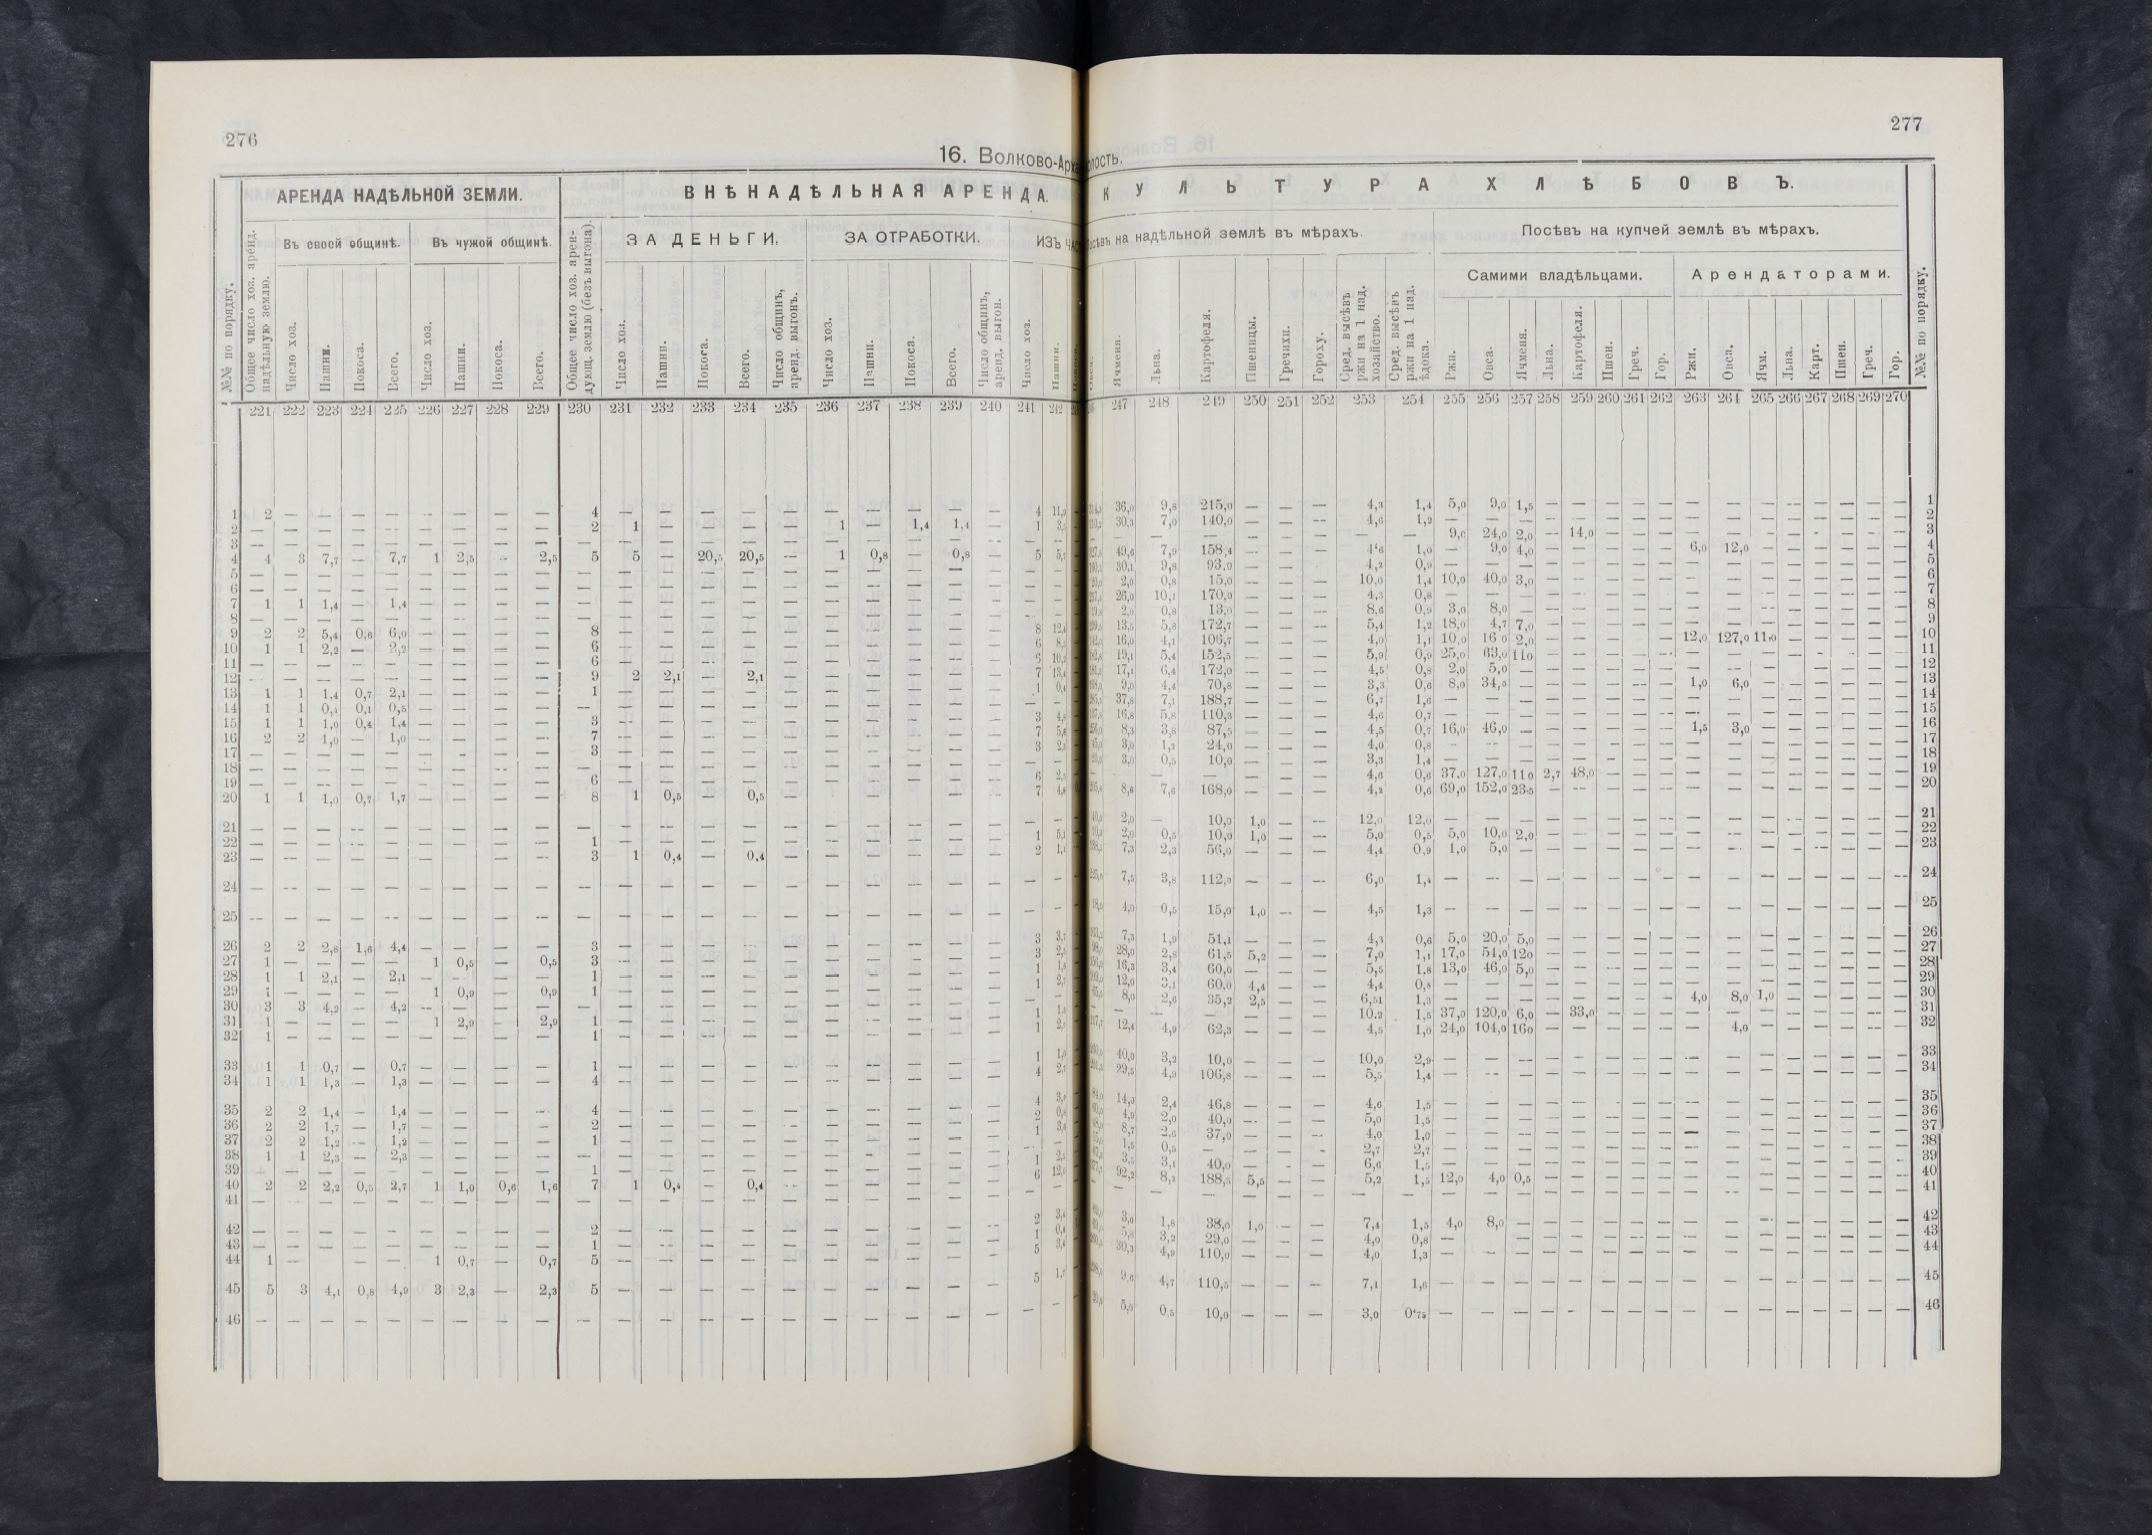 276
277
16. Волково-Арха
лость.
АРЕНДА НАДѢЛЬНОЙ ЗЕМЛИ.
ВНѢНАДѢЛЬНАЯ АРЕНДА.
КУЛЬТУРА ХЛѢБОВЪ.
Въ своей общинѣ.
Въ чужой общинѣ.
ЗА ДЕНЬГИ.
ЗА ОТРАБОТКИ.
ИЗЪ ЧАС
на надѣльной землѣ въ мѣрахъ.
Посѣвъ на купчей землѣ въ мѣрахъ.
Самими владѣльцами.
Арендаторами.
№№ по порядку.
Общее число хоз. аренд. надѣльную землю.
Число хоз.
Пашни.
Покоса.
Всего.
Число хоз.
Пашни.
Покоса.
Всего.
Общее число хоз. арендующ. землю (безъ выгона).
Число хоз.
Пашни.
Покоса.
Всего.
Число общинъ, аренд. выгонъ.
Число хоз.
Пашни.
Покоса.
Всего.
Число общинъ, аренд. выгон.
Число хоз.
Пашни.
Ячменя.
Льна.
Картофеля.
Пшеницы.
Гречихи.
Гороху.
Сред. высѣвъ ржи на 1 над. хозяйство.
Сред. высѣвъ ржи на 1 над. ѣдока.
Ржи.
Овса.
Ячменя.
Льна.
Картофеля.
Пшен.
Греч.
Гор.
Ржи.
Овса.
Ячм.
Льна.
Карт.
Пшен.
Греч.
Гор.
№№ по порядку.
221 222 223 224 225 226 227 228 229 230 231 232 233 234 235 236 237 238 239 240 241 242
247 248 249 250 251 252 253 254 255 256 257 258 259 260 261 262 263 264 265 266 267 268 269 270
1 2 — — — — — — — — 4 — — — — — — — — — — 4
2 — — — — — — — — — 2 1 — — — — 1 — 1,4 1,4 — 1
3 — — — — — — — — — — — — — — — — — — — —
4 4 3 7,7 — 7,7 1 2,5 — 2,5 5 5 — 20,5 20,5 — 1 0,8 — 0,8 — 5
5 — — — — — — — — — — — — — — — — — — — —
6 — — — — — — — — — — — — — — — — — — — —
7 1 1 1,4 — 1,4 — — — — — — — — — — — — — — —
8 — — — — — — — — — — — — — — — — — — — —
9 2 2 5,4 0,6 6,0 — — — — 8 — — — — — — — — — — 8
10 1 1 2,2 — 2,2 — — — — 6 — — — — — — — — — — 6
11 — — — — — — — — — 6 — — — — — — — — — —
12 — — — — — — — — — 9 2 2,1 — 2,1 — — — — — — 7
13 1 1 1,4 0,7 2,1 — — — — 1 — — — — — — — — — — 1
14 1 1 0,4 0,1 0,5 — — — — — — — — — — — — — — — —
15 1 1 1,0 0,4 1,4 — — — — 3 — — — — — — — — — — 3
16 2 2 1,0 — 1,0 — — — — 7 — — — — — — — — — — 7
17 — — — — — — — — — 3 — — — — — — — — — — 3
18 — — — — — — — — — — — — — — — — — — — — —
19 — — — — — — — — — 6 — — — — — — — — — — 6
20 1 1 1,0 0,7 1,7 — — — — 8 1 0,5 — 0,5 — — — — — — 7
21 — — — — — — — — — — — — — — — — — — — — —
22 — — — — — — — — — 1 — — — — — — — — — — 1
23 — — — — — — — — — 3 1 0,4 — 0,4 — — — — — — 2
24 — — — — — — — — — — — — — — — — — — — — —
25 — — — — — — — — — — — — — — — — — — — — —
26 2 2 2,8 1,6 4,4 — — — — 3 — — — — — — — — — — 3
27 1 — — — — 1 0,5 — 0,5 3 — — — — — — — — — — 3
28 1 1 2,1 — 2,1 — — — — 1 — — — — — — — — — — 1
29 1 — — — — 1 0,9 — 0,9 1 — — — — — — — — — — 1
30 3 3 4,2 — 4,2 — — — — — — — — — — — — — — — —
31 1 — — — — 1 2,9 — 2,9 1 — — — — — — — — — — 1
32 1 — — — — — — — — 1 — — — — — — — — — — 1
33 1 1 0,7 — 0,7 — — — — 1 — — — — — — — — — — 1
34 1 1 1,3 — 1,3 — — — — 4 — — — — — — — — — — 4
35 2 2 1,4 — 1,4 — — — — 4 — — — — — — — — — — 4
36 2 2 1,7 — 1,7 — — — — 2 — — — — — — — — — — 2
37 2 2 1,2 — 1,2 — — — — 1 — — — — — — — — — — 1
38 1 1 2,3 — 2,3 — — — — — — — — — — — — — — — —
39 — — — — — — — — — 1 — — — — — — — — — — 1
40 2 2 2,2 0,5 2,7 1 1,0 0,6 1,6 7 1 0,4 — 0,4 — — — — — — 6
41 — — — — — — — — — — — — — — — — — — — — —
42 — — — — — — — — — 2 — — — — — — — — — — 2
43 — — — — — — — — — 1 — — — — — — — — — — 1
44 1 — — — — 1 0,7 — 0,7 5 — — — — — — — — — — 5
45 5 3 4,1 0,8 4,9 3 2,3 — 2,3 5 — — — — — — — — — — 5
46 — — — — — — — — — — — — — — — — — — — — —
36,0 9,8 215,0 — — — 4,3 1,4 5,0 9,0 1,5 — — — — — — — — — — — — — 1
30,3 7,0 140,0 — — — 4,6 1,2 — — — — — — — — — — — — — — — — 2
— — — — — — — — 9,0 24,0 2,0 — 14,0 — — — — — — — — — — — 3
49,6 7,9 158,4 — — — 4,6 1,0 — 9,0 4,0 — — — — — 6,0 12,0 — — — — — — 4
30,1 9,8 93,0 — — — 4,2 0,9 — — — — — — — — — — — — — — — — 5
2,0 0,8 15,0 — — — 10,0 1,4 10,0 40,0 3,0 — — — — — — — — — — — — — 6
26,0 10,1 170,0 — — — 4,3 0,8 — — — — — — — — — — — — — — — — 7
2,0 0,8 13,0 — — — 8,6 0,9 3,0 8,0 — — — — — — — — — — — — — — 8
13,5 5,8 172,7 — — — 5,4 1,2 18,0 4,7 7,0 — — — — — — — — — — — — — 9
16,0 4,1 106,7 — — — 4,0 1,1 10,0 16 0 2,0 — — — — — 12,0 127,0 11,0 — — — — — 10
19,1 5,4 152,5 — — — 5,9 0,9 25,0 63,0 11 0 — — — — — — — — — — — — — 11
17,1 6,4 172,0 — — — 4,5 0,8 2,0 5,0 — — — — — — — — — — — — — — 12
9,0 4,4 70,8 — — — 3,3 0,6 8,0 34,0 — — — — — — 1,0 6,0 — — — — — — 13
37,8 7,1 188,7 — — — 6,7 1,6 — — — — — — — — — — — — — — — — 14
16,8 5,8 110,3 — — — 4,6 0,7 — — — — — — — — — — — — — — — — 15
8,3 3,8 87,5 — — — 4,5 0,7 16,0 46,0 — — — — — — 1,5 3,0 — — — — — — 16
3,0 1,2 24,0 — — — 4,0 0,8 — — — — — — — — — — — — — — — — 17
3,0 0,5 10,0 — — — 3,3 1,4 — — — — — — — — — — — — — — — — 18
— — — — — — 4,6 0,6 37,0 127,0 11 0 2,7 48,0 — — — — — — — — — — — 19
8,6 7,6 168,0 — — — 4,2 0,6 69,0 152,0 23,5 — — — — — — — — — — — — — 20
2,0 — 10,0 1,0 — — 12,0 12,0 — — — — — — — — — — — — — — — — 21
2,0 0,5 10,0 1,0 — — 5,0 0,5 5,0 10,0 2,0 — — — — — — — — — — — — — 22
7,3 2,3 56,0 — — — 4,4 0,9 1,0 5,0 — — — — — — — — — — — — — — 23
7,5 3,8 112,0 — — — 6,0 1,4 — — — — — — — — — — — — — — — — 24
4,0 0,5 15,0 1,0 — — 4,5 1,3 — — — — — — — — — — — — — — — — 25
7,3 1,9 51,1 — — — 4,3 0,6 5,0 20,0 5,0 — — — — — — — — — — — — — 26
28,0 2,8 61,5 5,2 — — 7,0 1,1 17,0 54,0 12 0 — — — — — — — — — — — — — 27
16,3 3,4 60,0 — — — 5,5 1,8 13,0 46,0 5,0 — — — — — — — — — — — — — 28
12,0 3,1 60,0 4,4 — — 4,4 0,8 — — — — — — — — — — — — — — — — 29
8,0 2,6 35,2 2,5 — — 6,51 1,3 — — — — — — — — 4,0 8,0 1,0 — — — — — 30
— — — — — — 10.2 1,5 37,0 120,0 6,0 — 33,0 — — — — — — — — — — — 31
12,4 4,9 62,3 — — — 4,5 1,0 24,0 104,0 16 0 — — — — — — 4,0 — — — — — — 32
40,0 3,2 10,0 — — — 10,0 2,9 — — — — — — — — — — — — — — — — 33
29,5 4,9 106,8 — — — 5,5 1,4 — — — — — — — — — — — — — — — — 34
14,0 2,4 46,8 — — — 4,6 1,5 — — — — — — — — — — — — — — — — 35
4,9 2,0 40,0 — — — 5,0 1,5 — — — — — — — — — — — — — — — — 36
8,7 2,6 37,0 — — — 4,0 1,0 — — — — — — — — — — — — — — — — 37
1,5 0,5 — — — — 2,7 2,7 — — — — — — — — — — — — — — — — 38
3,5 3,1 40,0 — — — 6,6 1,5 — — — — — — — — — — — — — — — — 39
92,2 8,2 188,5 5,5 — — 5,2 1,5 12,0 4,0 0,5 — — — — — — — — — — — — — 40
— — — — — — — — — — — — — — — — — — — — — — — — 41
3,0 1,8 38,0 1,0 — — 7,4 1,5 4,0 8,0 — — — — — — — — — — — — — — 42
5,8 3,2 29,0 — — — 4,0 0,8 — — — — — — — — — — — — — — — — 43
30,3 4,9 110,0 — — — 4,0 1,3 — — — — — — — — — — — — — — — — 44
9,6 4,7 110,5 — — — 7,1 1,6 — — — — — — — — — — — — — — — — 45
5,0 0,5 10,0 — — — 3,0 0,75 — — — — — — — — — — — — — — — — 46